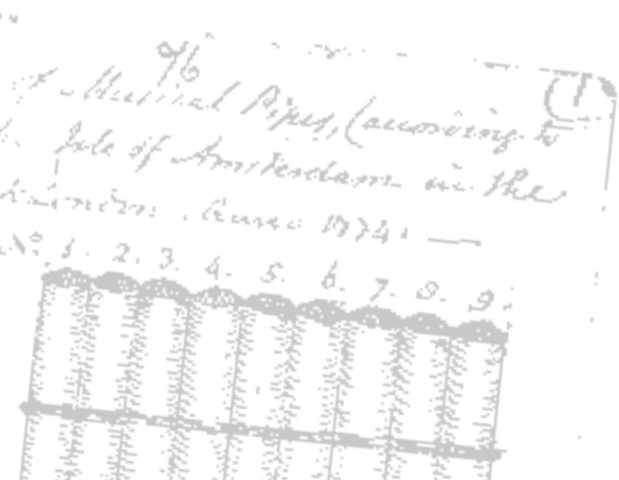 of
Musical Pipes, (according to
Isle of Amsterdam in the
Anno 1774.
No. 1. 2. 3. 4. 5. 6. 7. 8. 9.